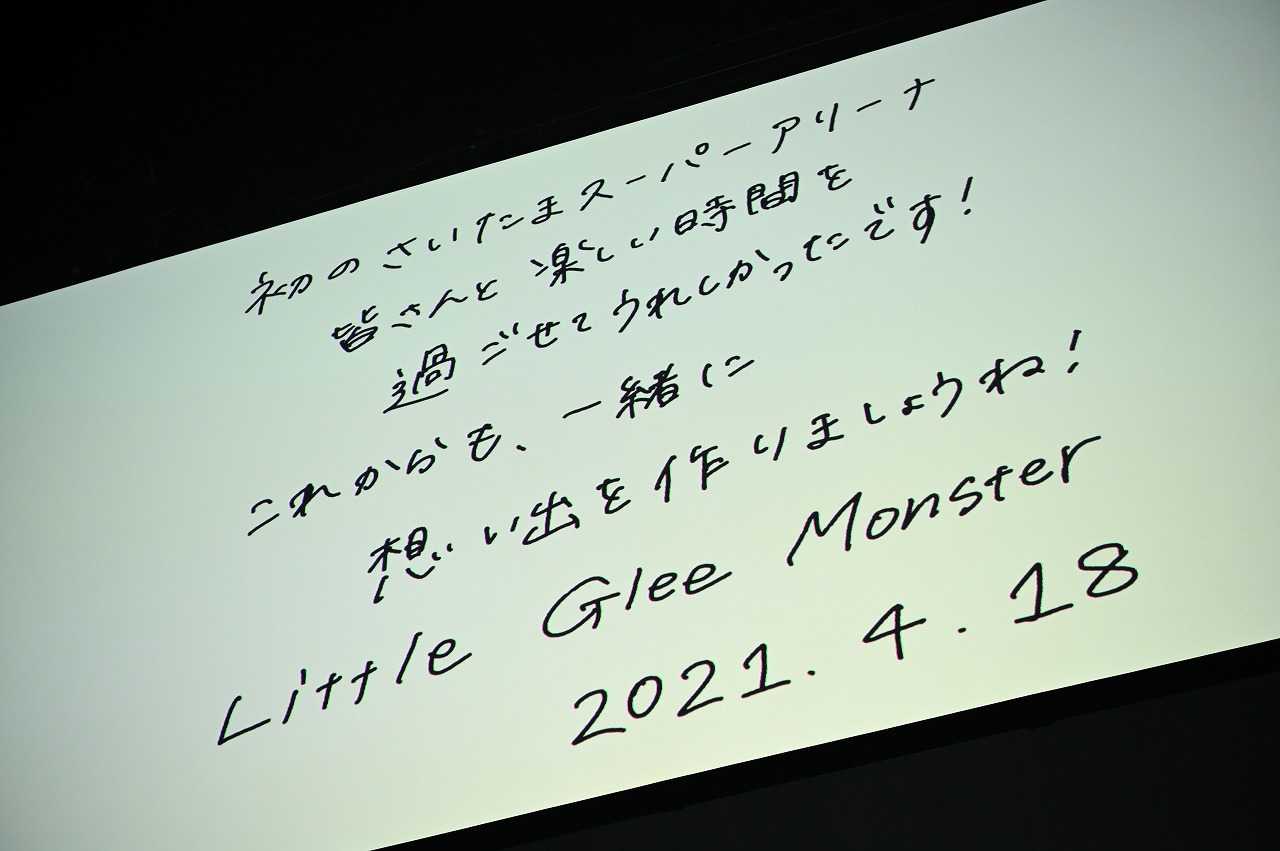 初のさいたまスーパーアリーナ
皆さんと楽しい時間を
過ごせてうれしかったです！
これからも、一緒に
想い出を作りましょうね！
Little Glee Monster
2021.4.18